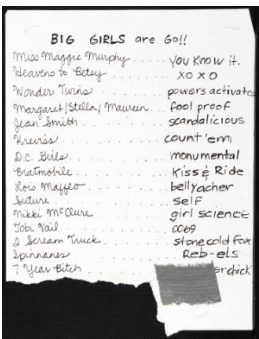 BIG GIRLS are Go!!
Miss Maggie Murphy . . . . you know it.
Heavens to Betsy . . . . . . XOXO
Wonder Twins . . . . . . . powers activate
Margaret/Stella/Maureen . . fool proof
Jean Smith . . . . . . . . scandalicious
. . . . . . . . count 'em
D.C. Girls . . . . . . . . monumental
Bratmobile . . . . . . . . Kiss & Ride
Lois Maffeo . . . . . . . . bellyacher
Suture . . . . . . . . . . self
Nikki McClure . . . . . . . girl science
Tobi Vail . . . . . . . . .
I Scream Truck . . . . . . stone cold Fox
Spinnanes . . . . . . . . . Reb-els
7 Year Bitch . . . . chick